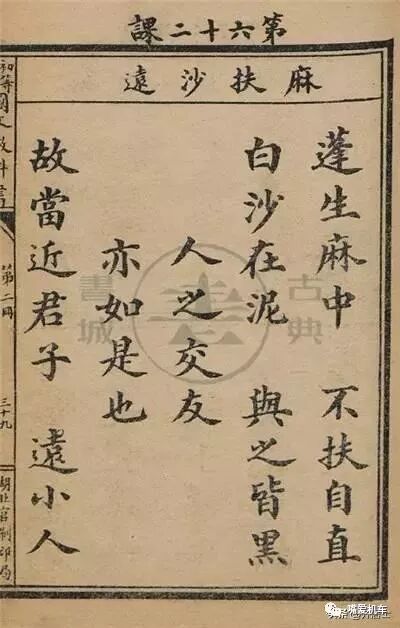 第六十二課
麻扶沙遠
蓬生麻中 不扶自直
白沙在泥 與之皆黑
人之交友
亦如是也
故當近君子 遠小人
初等國文教科書
第二冊
三十九
湖北官刷印局
古典
書城
嘴爱机车